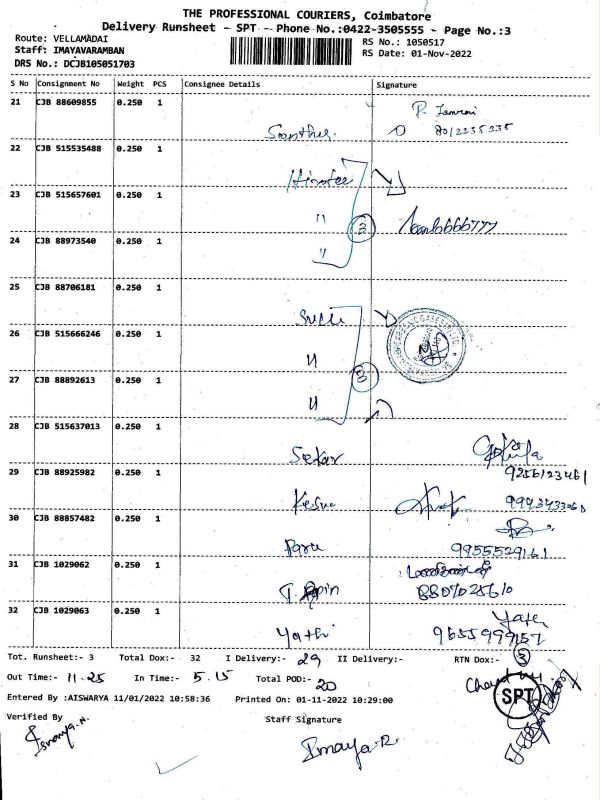 THE PROFESSIONAL COURIERS, Coimbatore
Delivery Runsheet - SPT - Phone No.:0422-3505555 - Page No.:3
Route: VELLAMADAI
Staff: IMAYAVARAMBAN
DRS No.: DCJB105051703
RS No.: 1050517
RS Date: 01-Nov-2022
S No Consignment No Weight PCS Consignee Details Signature
21 CJB 88609855 0.250 1
8012235235
22 CJB 515535488 0.250 1
23 CJB 515657601 0.250 1
"
3
24 CJB 88973540 0.250 1
"
25 CJB 88706181 0.250 1
26 CJB 515666246 0.250 1
"
27 CJB 88892613 0.250 1
"
3
28 CJB 515637013 0.250 1 Sekar
9256123461
29 CJB 88925982 0.250 1
30 CJB 88857482 0.250 1
9955529161
31 CJB 1029062 0.250 1
8807025610
32 CJB 1029063 0.250 1 Yathi
9655999157
Tot. Runsheet:- 3 Total Dox:- 32 I Delivery:- 29 II Delivery:- RTN Dox:- 3
Out Time:- 11.25 In Time:- 5.15 Total POD:- 20
SPT
Entered By :AISWARYA 11/01/2022 10:58:36 Printed On: 01-11-2022 10:29:00
Verified By Staff Signature
Imaya.R.